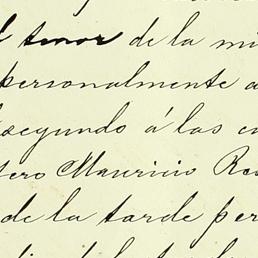 tenor de la mi
personalmente a
segundo á las cu
tero Mauricio Re
de la tarde per